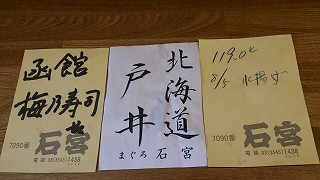 函館
梅乃寿司
7090番
石宮
電話 03(3545)1438
北海道
戸井
まぐろ 石宮
119.0K
8/5 水揚げ
7090番
石宮
電話 03(3545)1438